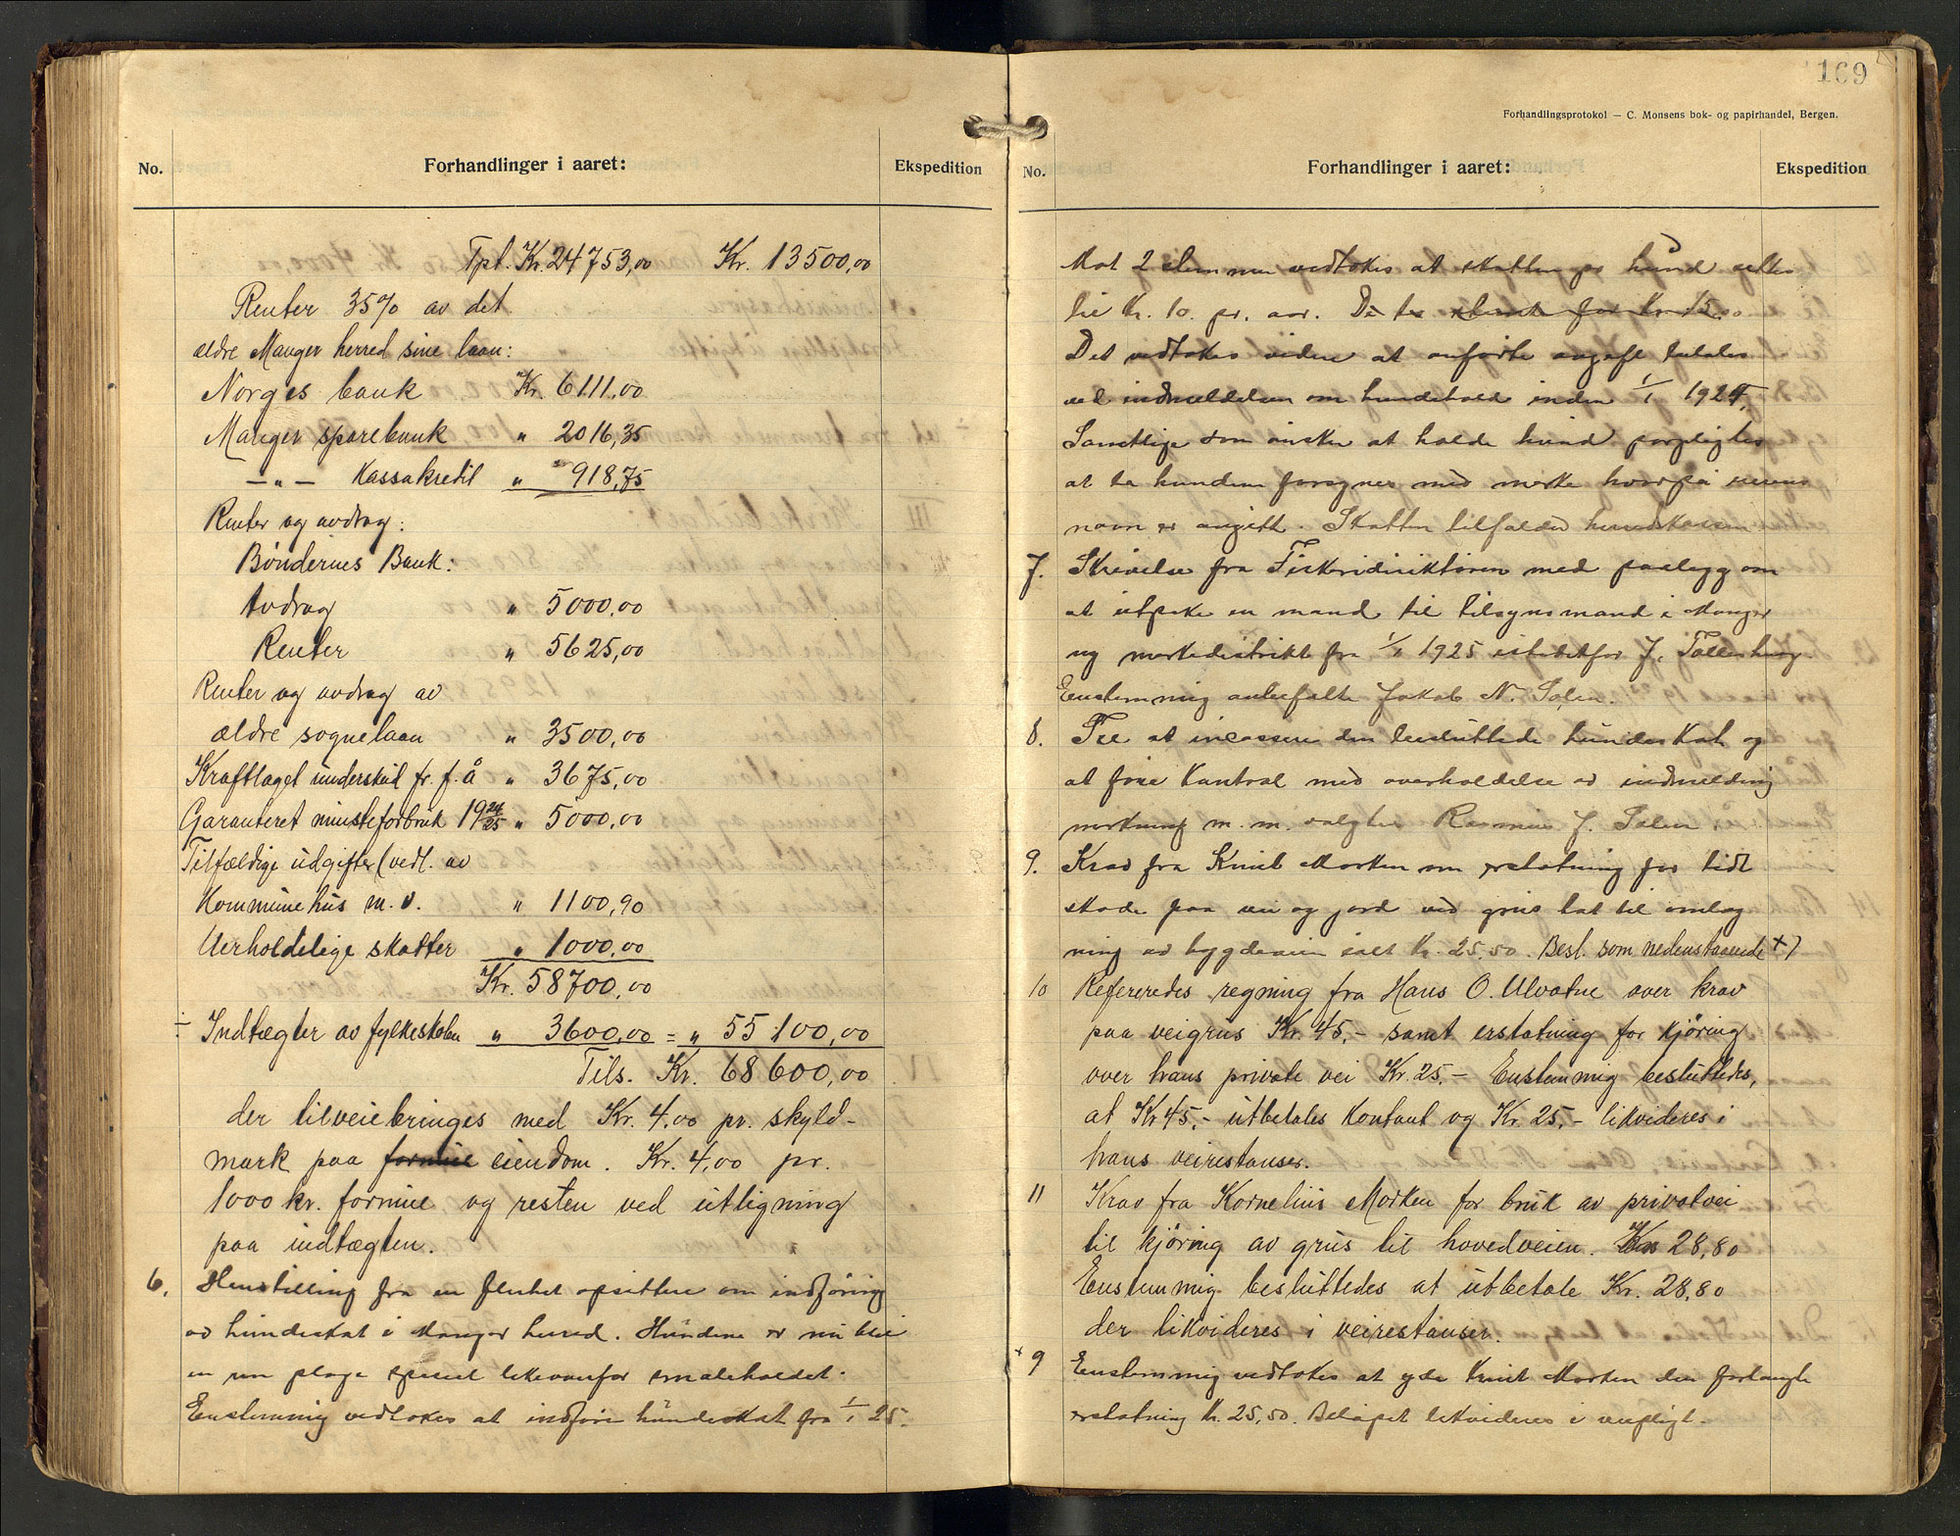 No.
Forhandlinger i aaret:
Ekspedition
Tpt. Kr. 24753,00 Kr. 13500,00
Renter 35% av det
ældre Manger herred sine laan:
Norges bank Kr. 6111,00
Manger sparebank „ 2016,35
—„— Kassakredit „ 918,75
Renter og avdrag:
Bøndernes Bank:
Avdrag „ 5000,00
Renter „ 5625,00
Renter og avdrag av
ældre sognelaan „ 3500,00
Kraftlaget underskud fr. f. å „ 3675,00
Garanteret minsteforbruk 1924/25 „ 5000,00
Tilfældige udgifter (vedl. av
Kommunehus m.v. „ 1100,90
Uerholdelige skatter „ 1000,00
Kr. 58700,00
÷ Indtægter av fylkeskolen „ 3600,00 = „ 55100,00
Tils. Kr. 68600,00
der tilveiebringes med Kr. 4,00 pr. skyld-
mark paa formue eiendom. Kr. 4,00 pr.
1000 kr. formue og resten ved utligning
paa indtægten.
6. Henstilling fra en flerhet opsittere om indföring
av hundeskat i Manger herred. Hundene er nu blit
en ren plage specielt likeovenfor smaleholdet.
Enstemmig vedtokes at indføre hundeskat fra 1/1 25.
169
Forhandlingsprotokol — C. Monsens bok- og papirhandel, Bergen.
No.
Forhandlinger i aaret:
Ekspedition
Mot 2 stemmer vedtokes at skatten pr hund settes
til Kr. 10. pr. aar. De to stemte for kr 15.00
Det vedtokes videre at anførte avgift betales
ved indmeldelsen om hundehold inden 1/1 1925.
Samtlige som ønsker at holde hund forpligtes
at la hunden forsynes med merke hvorpaa eierens
navn er angitt. Skatten tilfalder herredskassen
7. Skrivelse fra Fiskeridirektøren med paalegg om
at utpeke en mand til tilsynsmand i Manger
og merkedistrikt fra 1/1 1925 istedetfor J. Tollenborg
Enstemmig anbefalte Jakob N. Solen.
8. Til at incassere den besluttede hundeskat og
at føre kontrol med overholdelse av indmelding
merking m. m. valgtes Rasmus J. Solen.
9. Krav fra Knut Morken om erstatning for lidt
skade paa vei og jord ved grus tat til omlæg
ning av bygdeveien ialt Kr. 25,50. Besl. som nedenstaaende +)
10 Refereredes regning fra Hans O. Ulvatne over krav
paa veigrus Kr. 45,- samt erstatning for kjöring
over hans private vei Kr. 25.- Enstemmig besluttedes,
at Kr 45,- utbetales kontant og Kr. 25,- likvideres i
hans veirestanser.
11 Krav fra Kornelius Morken for bruk av privatvei
til kjöring av grus til hovedveien. Kr. 28,80
Enstemmig besluttedes at utbetale Kr. 28,80
der likvideres i veirestanser.
+ 9 Enstemmig vedtokes at yde Knut Morken den forlangte
erstatning Kr. 25,50. Beløpet likvideres i veipligt.